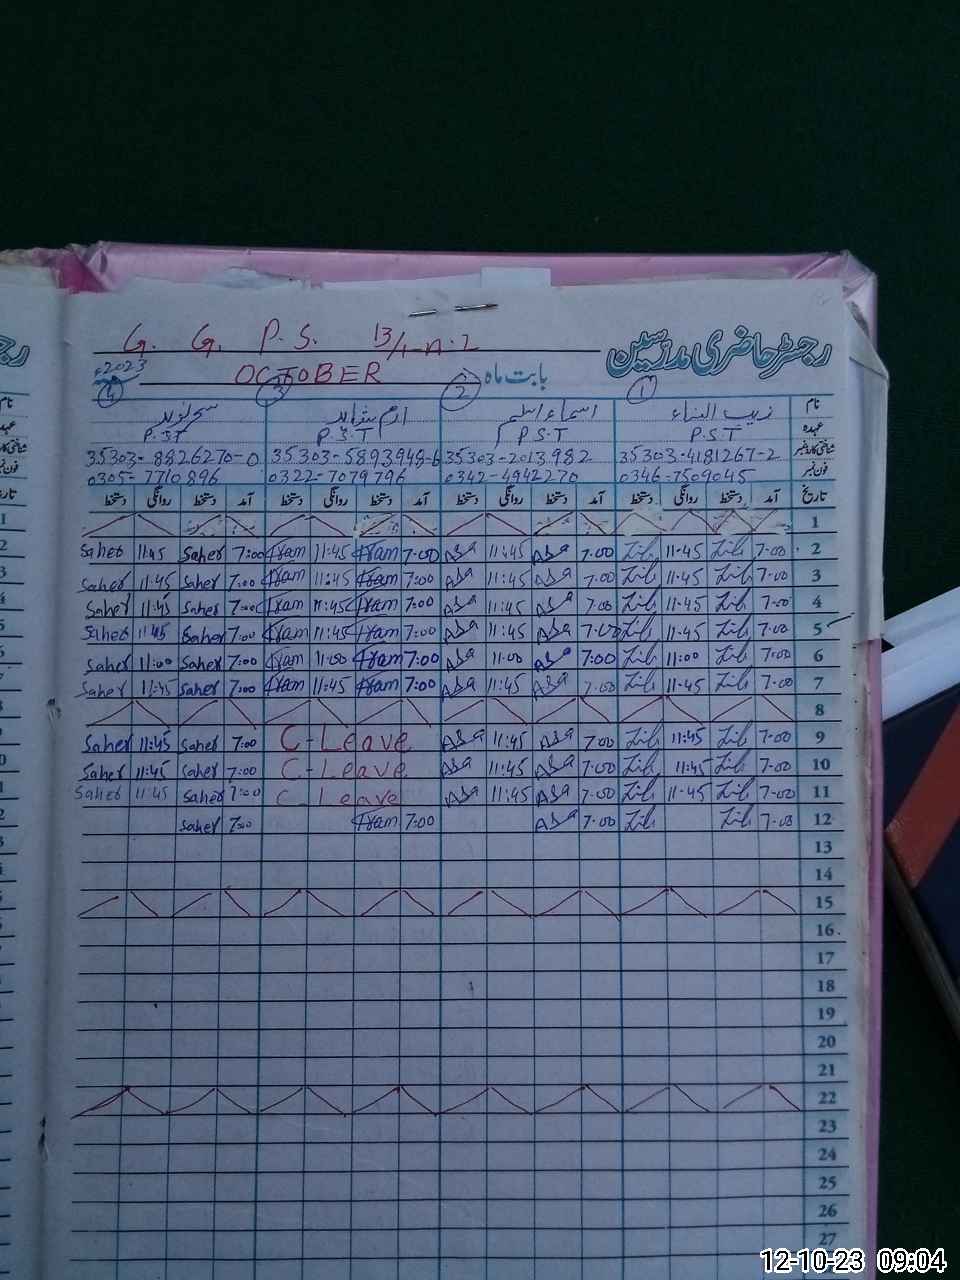 رجسٹر حاضری مدرسین
G. G. P. S. 13/1-A.L
بابت ماہ OCTOBER 2023ء
1 2 3 4
نام زیب النساء اسماء اسلم ارم شاہد سحر نوید
عہدہ P.S.T P.S.T P.S.T P.S.T
شناختی کارڈ نمبر 35303-4181267-2 35303-2013982 35303-5893948-6 35303-8826270-0
فون نمبر 0346-7509045 0342-4942270 0322-7079796 0305-7710896
تاریخ آمد دستخط روانگی دستخط آمد دستخط روانگی دستخط آمد دستخط روانگی دستخط آمد دستخط روانگی دستخط
1
2 7-00 11-45 7:00 Asa 11:45 Asa 7:00 Iram 11:45 Iram 7:00 Saher 11:45 Saher
3 7-00 11-45 7:00 Asa 11:45 Asa 7:00 Iram 11:45 Iram 7:00 Saher 11:45 Saher
4 7-00 11-45 7:00 Asa 11:45 Asa 7:00 Iram 11:45 Iram 7:00 Saher 11:45 Saher
5 7-00 11-45 7:00 Asa 11:45 Asa 7:00 Iram 11:45 Iram 7:00 Saher 11:45 Saher
6 7:00 11:00 7:00 Asa 11:00 Asa 7:00 Iram 11:00 Iram 7:00 Saher 11:00 Saher
7 7-00 11-45 7:00 Asa 11:45 Asa 7:00 Iram 11:45 Iram 7:00 Saher 11:45 Saher
8
9 7-00 11:45 7:00 Asa 11:45 Asa C-Leave 7:00 Saher 11:45 Saher
10 7-00 11:45 7:00 Asa 11:45 Asa C-Leave 7:00 Saher 11:45 Saher
11 7-00 11-45 7-00 Asa 11:45 Asa C-Leave 7:00 Saher 11:45 Saher
12 7-00 7:00 Asa 7:00 Iram 7:00 Saher
13
14
15
16
17
18
19
20
21
22
23
24
25
26
27
12-10-23 09:04